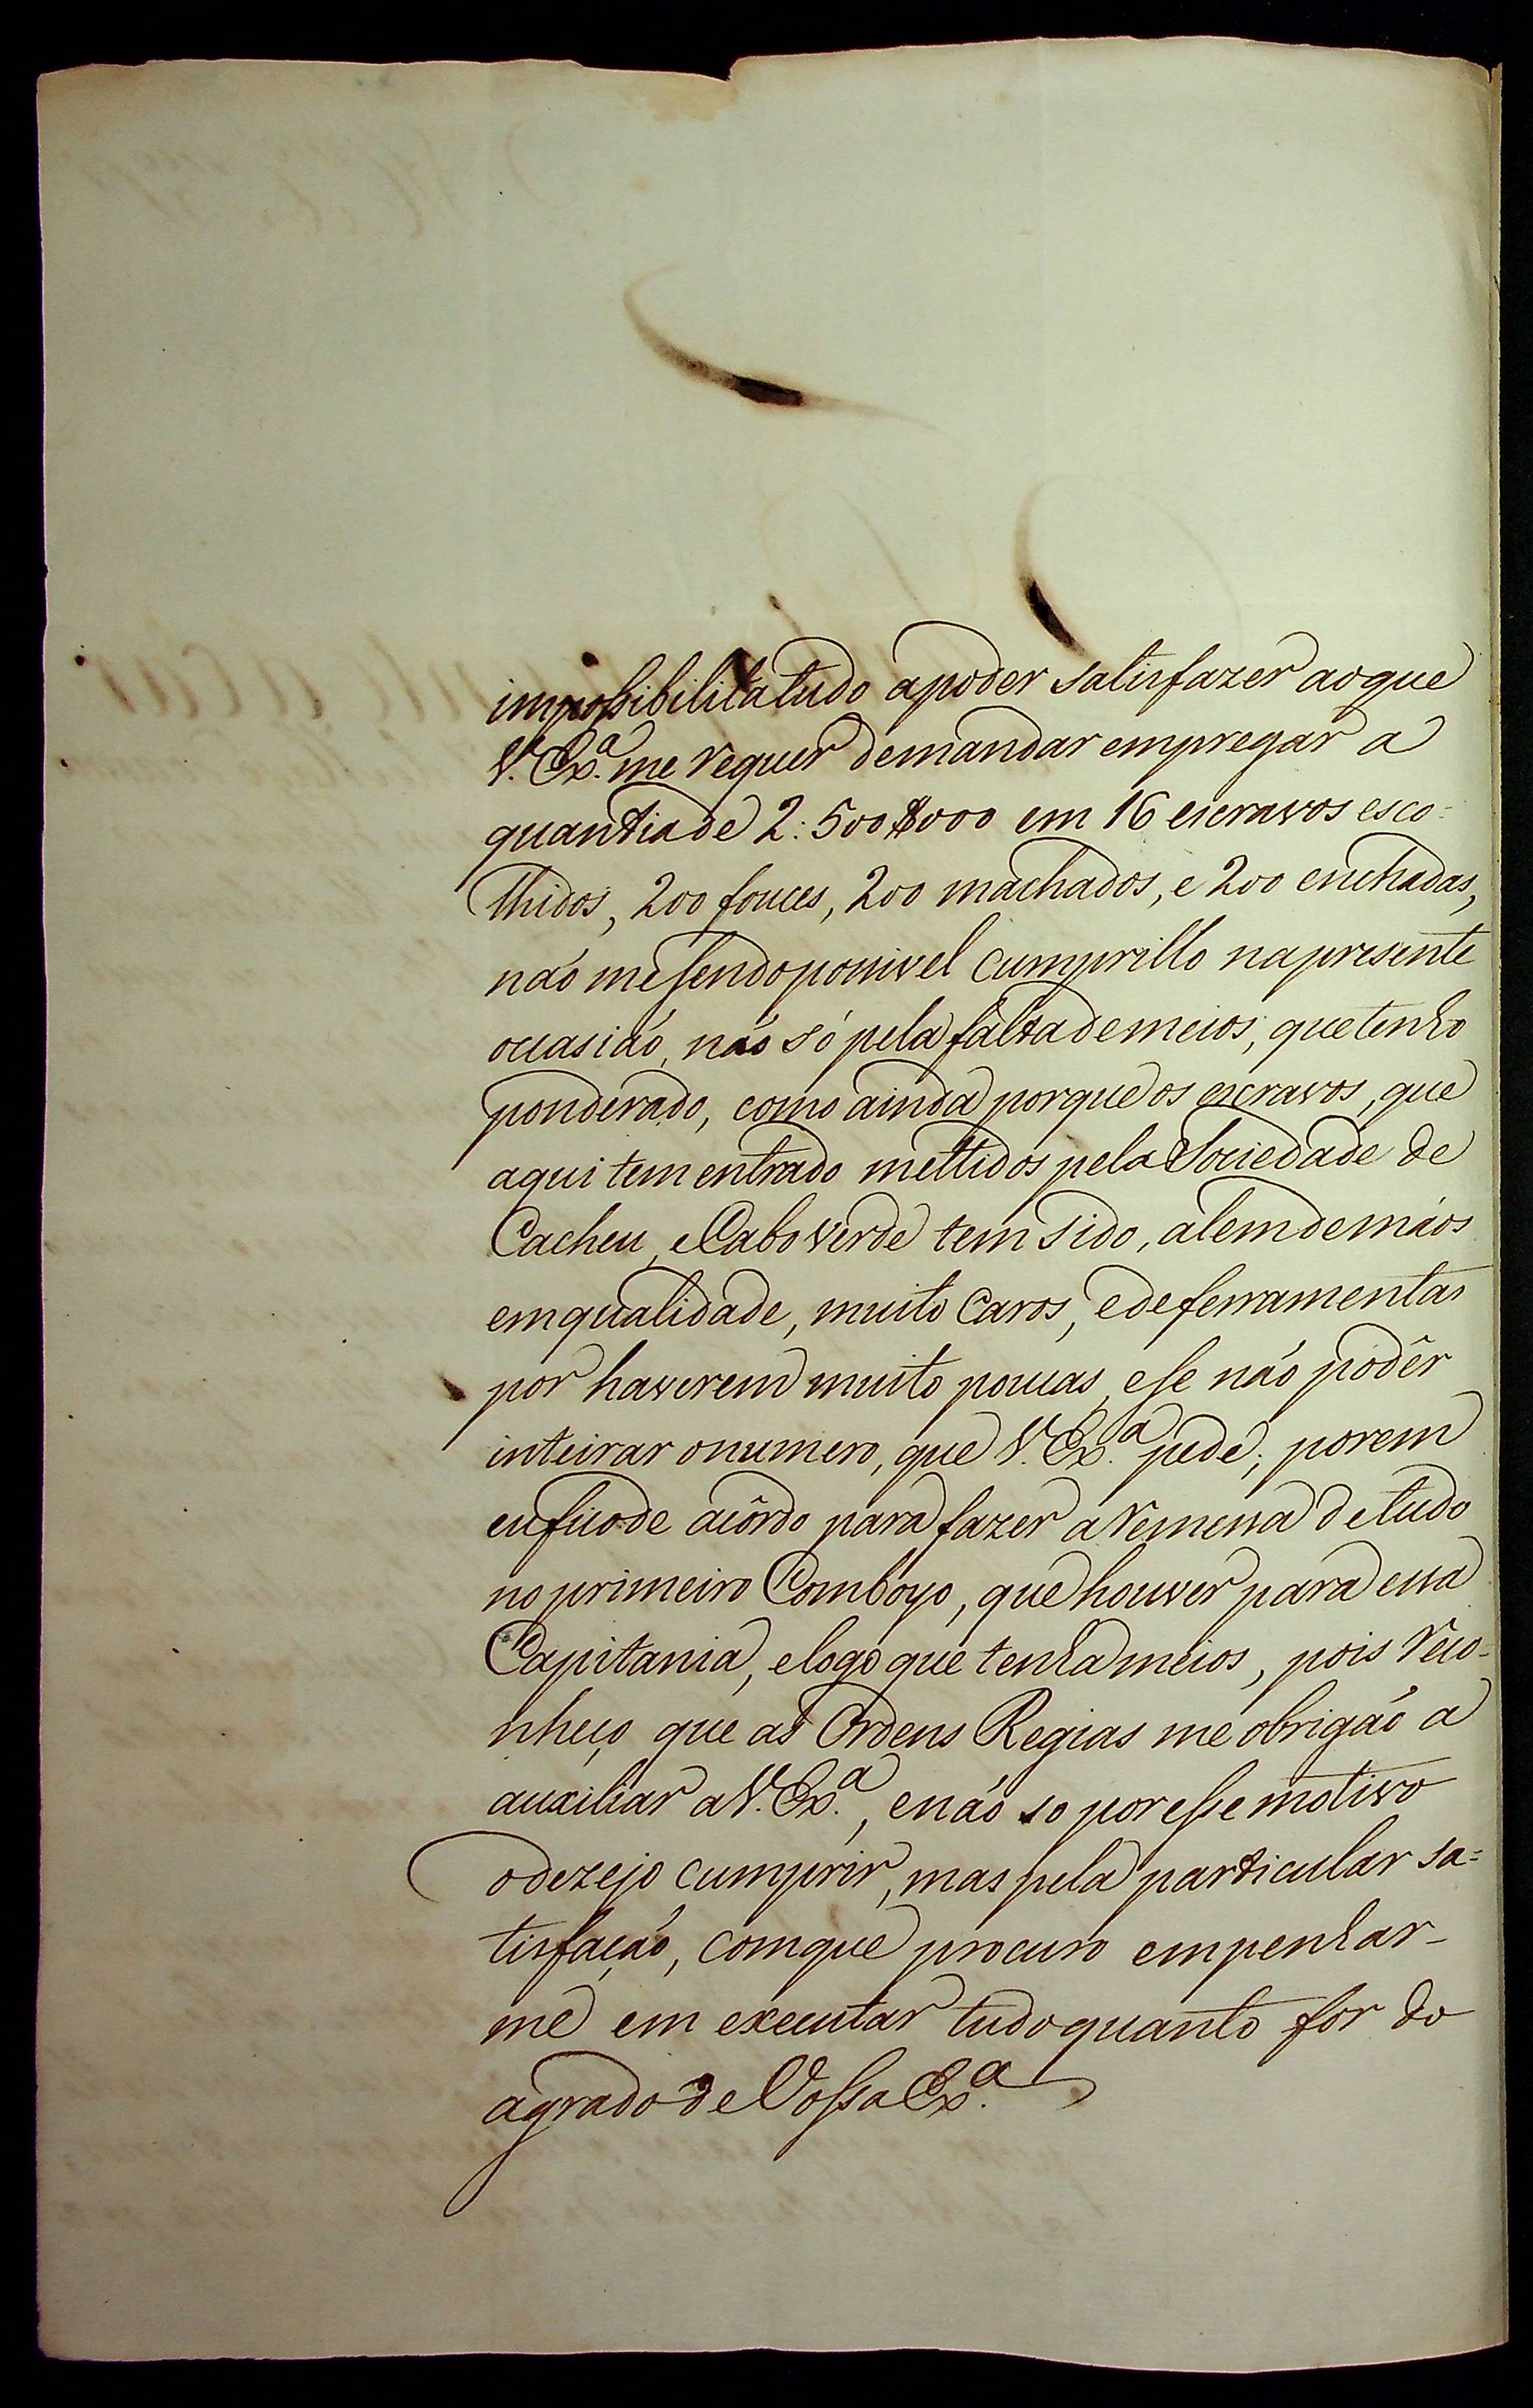 impossibilita tudo a poder satisfazer ao que
V. Ex.ª me requer de mandar empregar a
quantia de 2:500$000 em 16 escravos esco=
lhidos, 200 fouces, 200 machados, e 200 enchadas,
não me sendo possivel cumprillo na presente
occasião, não só pela falta de meios, que tenho
ponderado, como ainda porque os escravos, que
aqui tem entrado mettidos pela Sociedade de
Cacheu, e Cabo Verde tem sido, alem de máos
em qualidade, muito caros, e de ferramentas
por haverem muito poucas, e se não podêr
inteirar o numero, que V. Ex.ª pede; porem
eu fico de acôrdo para fazer a remessa de tudo
no primeiro Comboyo, que houver para essa
Capitania, e logo que tenha meios, pois reco=
nheço que as Ordens Regias me obrigáo a
auxiliar a V. Ex.ª, e não so por esse motivo
o dezejo cumprir, mas pela particular sa=
tisfação, com que procuro empenhar-
me em executar tudo quanto for do
agrado de Vossa Ex.ª